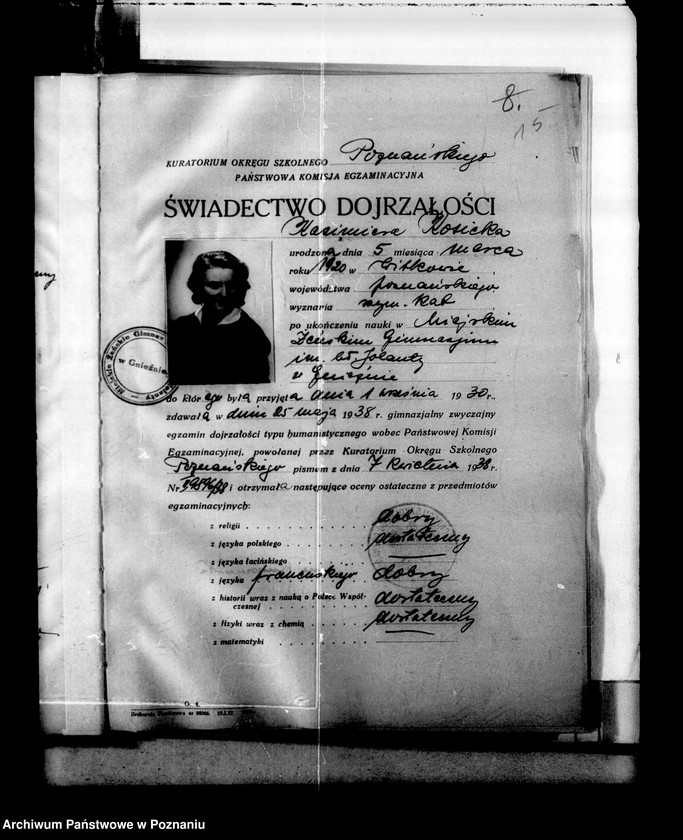 8.
15
KURATORIUM OKRĘGU SZKOLNEGO Poznańskiego
PAŃSTWOWA KOMISJA EGZAMINACYJNA
ŚWIADECTWO DOJRZAŁOŚCI
Kazimiera Kosicka
urodzona dnia 5 miesiąca marca
roku 1920 w Witkowie
województwa poznańskiego
wyznania rzym. kat
po ukończeniu nauki w Miejskim
Żeńskim Gimnazjum
im. bł. Jolanty
w Gnieźnie
do którego była przyjęta dnia 1 września 1930 r.
zdawała w dniu 25 maja 1938 r. gimnazjalny zwyczajny
egzamin dojrzałości typu humanistycznego wobec Państwowej Komisji
Egzaminacyjnej, powołanej przez Kuratorium Okręgu Szkolnego
Poznańskiego pismem z dnia 7 kwietnia 1938 r.
Nr i otrzymała następujące oceny ostateczne z przedmiotów
egzaminacyjnych:
z religii dobry
z języka polskiego dostateczny
z języka łacińskiego
z języka francuskiego dobry
z historii wraz z nauką o Polsce Współ-
czesnej dostateczny
z fizyki wraz z chemią dostateczny
z matematyki
G. 4.
w Gnieźnie
Archiwum Państwowe w Poznaniu